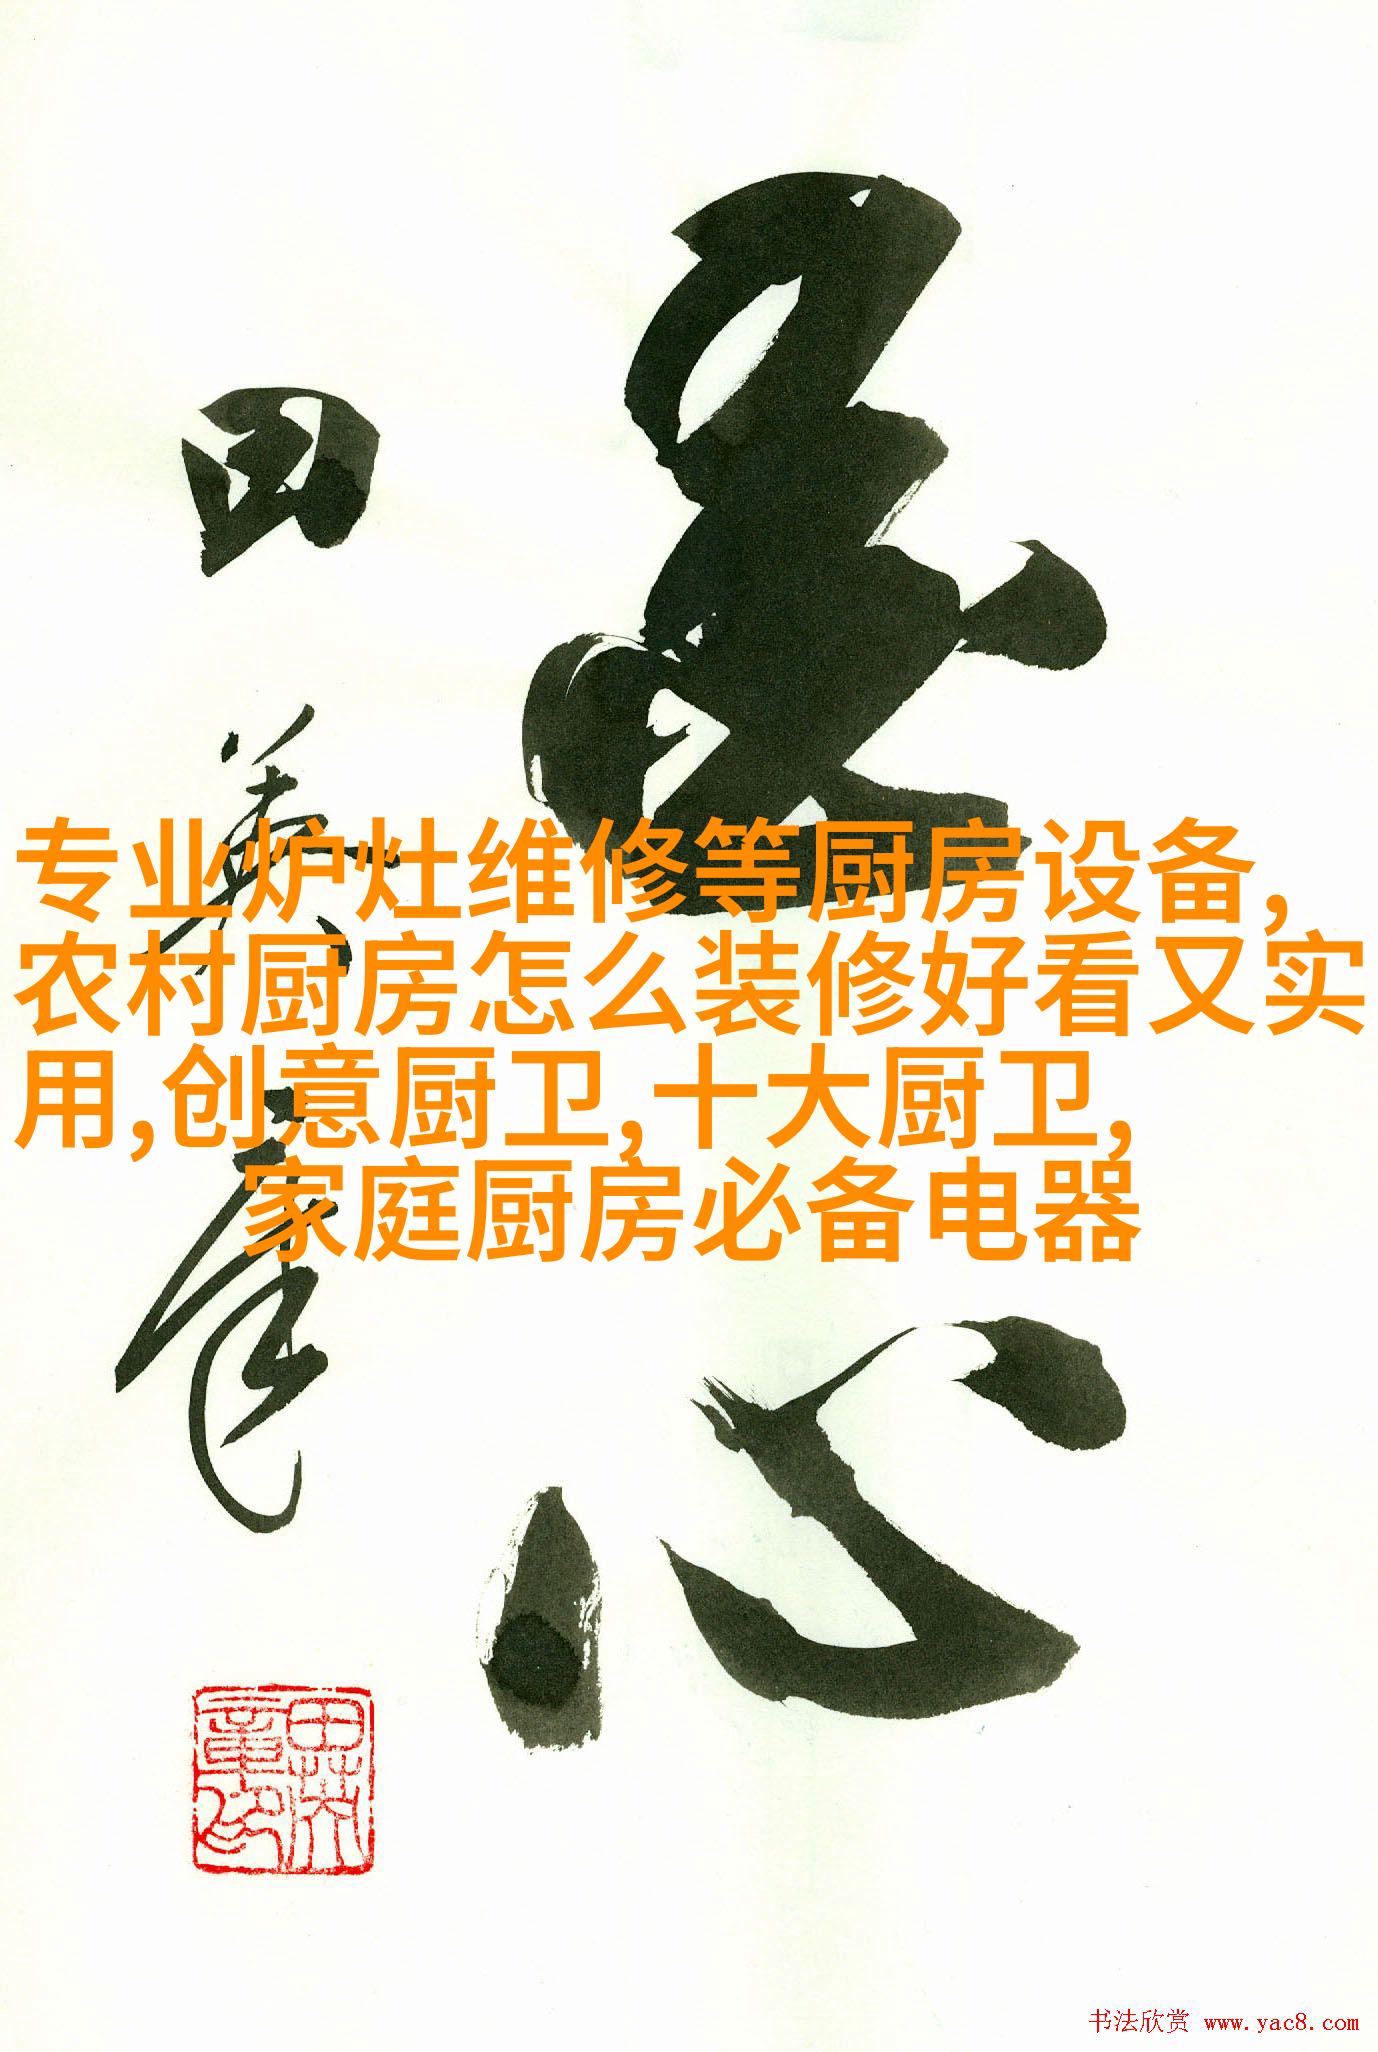 田英章
专业炉灶维修等厨房设备,
农村厨房怎么装修好看又实
用,创意厨卫,十大厨卫,
家庭厨房必备电器
心
田英章印
书法欣赏 www.yac8.com